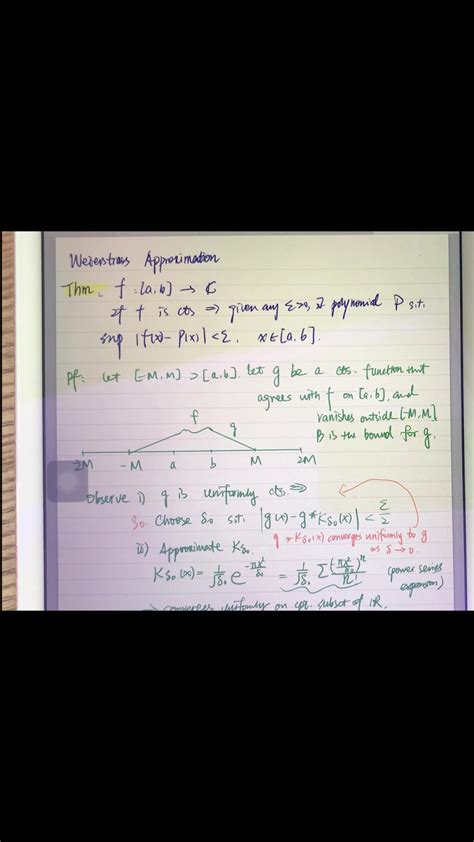 Weierstrass Approximation
Thm: f : [a,b] → ℂ
If f is cts ⇒ given any ε>0, ∃ polynomial P s.t.
sup |f(x) - P(x)| < ε, x∈[a,b].
Pf: Let [-M, M] ⊃ [a,b]. let g be a cts. function that
agrees with f on [a,b], and
vanishes outside [-M,M]
B is the bound for g.
f
g
-2M -M a b M 2M
Observe i) g is uniformly cts. ⇒
So. Choose δ₀ s.t. |g(x) - g*K_δ₀(x)| < ε/2
g * K_δ₀(x) converges uniformly to g
as δ → 0.
ii) Approximate K_δ₀.
K_δ₀(x) = 1/√δ₀ e^{-πx²/δ₀} = 1/√δ₀ Σ (-πx²/δ₀)ⁿ/n! (power series
expansion)
→ converges uniformly on cpt. subset of ℝ.